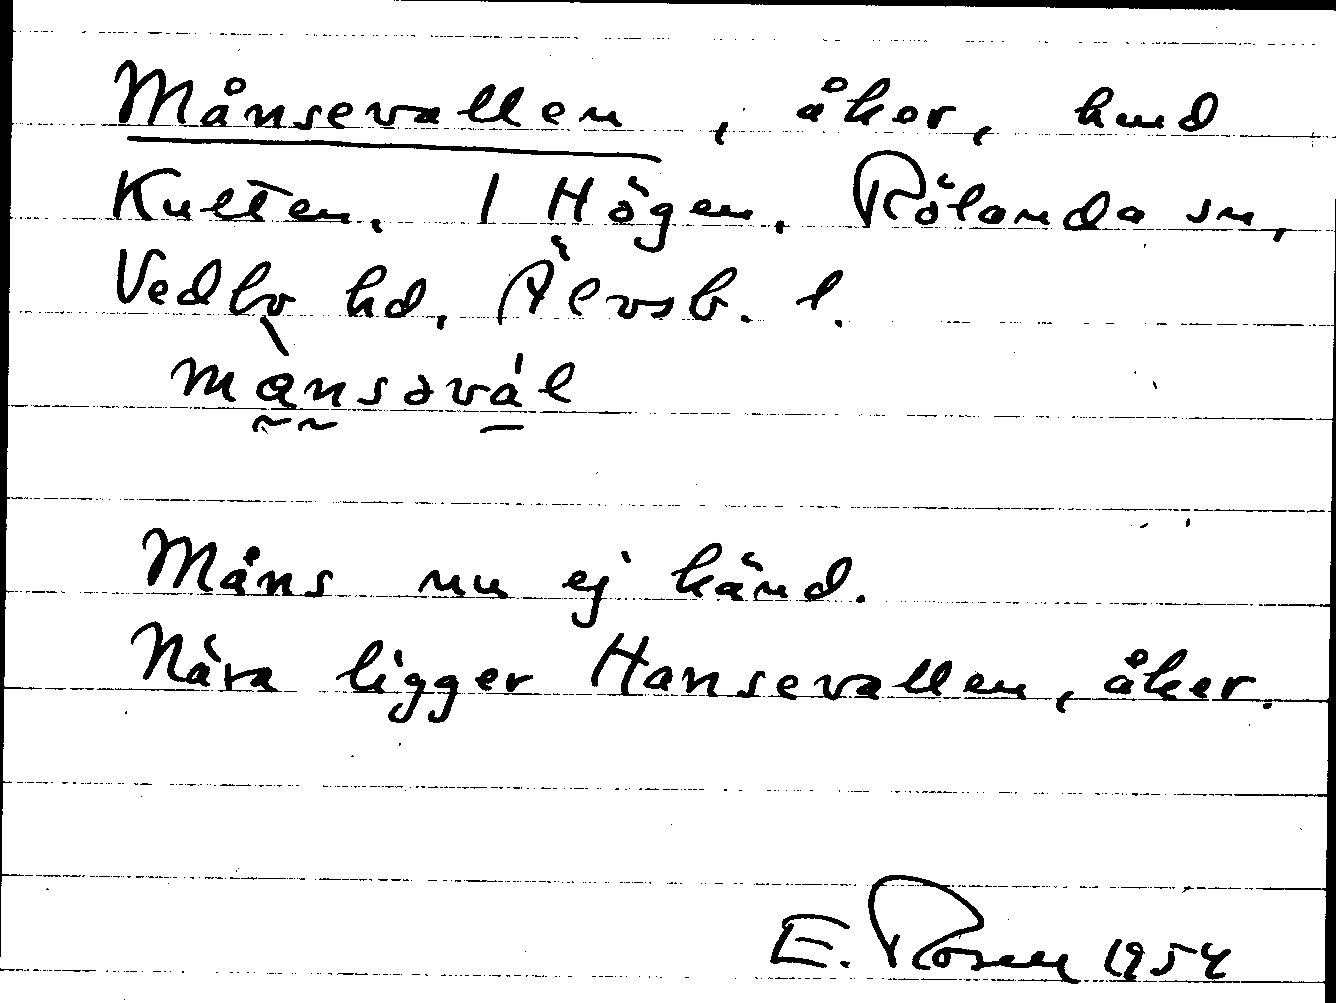 Månsevallen, åker, hmd
Kulten, 1 Högen, Rölanda sn,
Vedbo hd, Älvsb. l.
mànsəvál
Måns nu ej känd.
Nära ligger Hansevallen, åker.
E. Rosell 1954